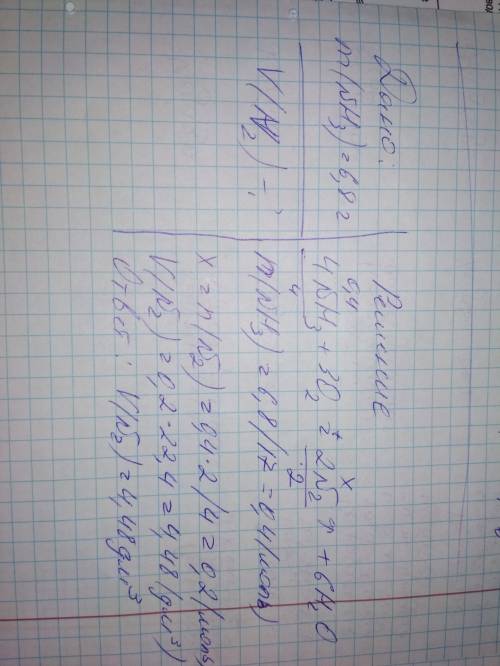 Дано:
m(NH₃) = 6,8 г
V(N₂) - ?
Решение
0,4 x
4NH₃ + 3O₂ = 2N₂ ↑ + 6H₂O
4 2
n(NH₃) = 6,8/17 = 0,4 (моль)
x = n(N₂) = 0,4·2/4 = 0,2 (моль
V(N₂) = 0,2·22,4 = 4,48 (дм³)
Ответ: V(N₂) = 4,48 дм³